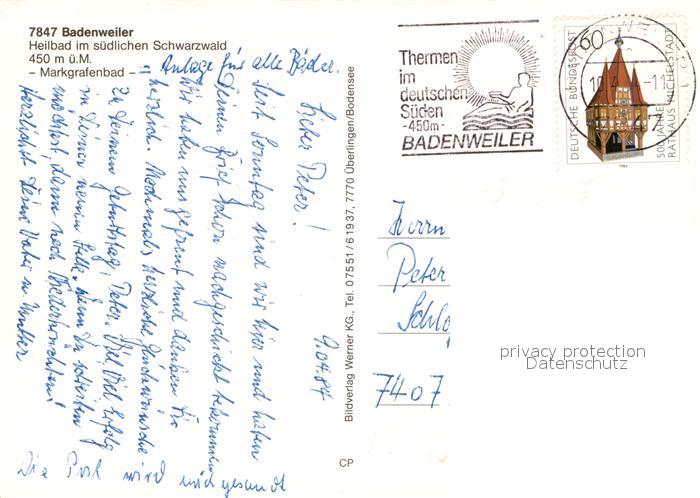 7847 Badenweiler
Heilbad im südlichen Schwarzwald
450 m ü.M.
- Markgrafenbad -
= Anlage für alle Bäder.
Lieber Peter!
9.04.84
Seit Sonntag sind wir hier und haben
Deinen Brief schon nachgeschickt bekommen
Wir haben uns gefreut und danken Dir
herzlich. Nochmals herzliche Glückwünsche
zu Deinem Geburtstag, Peter. Viel Viel Erfolg
in Deiner neuen Stelle. Wenn Du
möchtest, dann nach
Herzlichst Deine Vater u Mutter
Die Post wird nachgesandt
Bildverlag Werner KG., Tel. 07551/61937, 7770 Überlingen/Bodensee
CP
Thermen
im
deutschen
Süden
-450m-
BADENWEILER
60
DEUTSCHE BUNDESPOST
500 JAHRE
RATHAUS MICHELSTADT
1984
Herrn
Peter
7407
privacy protection
Datenschutz